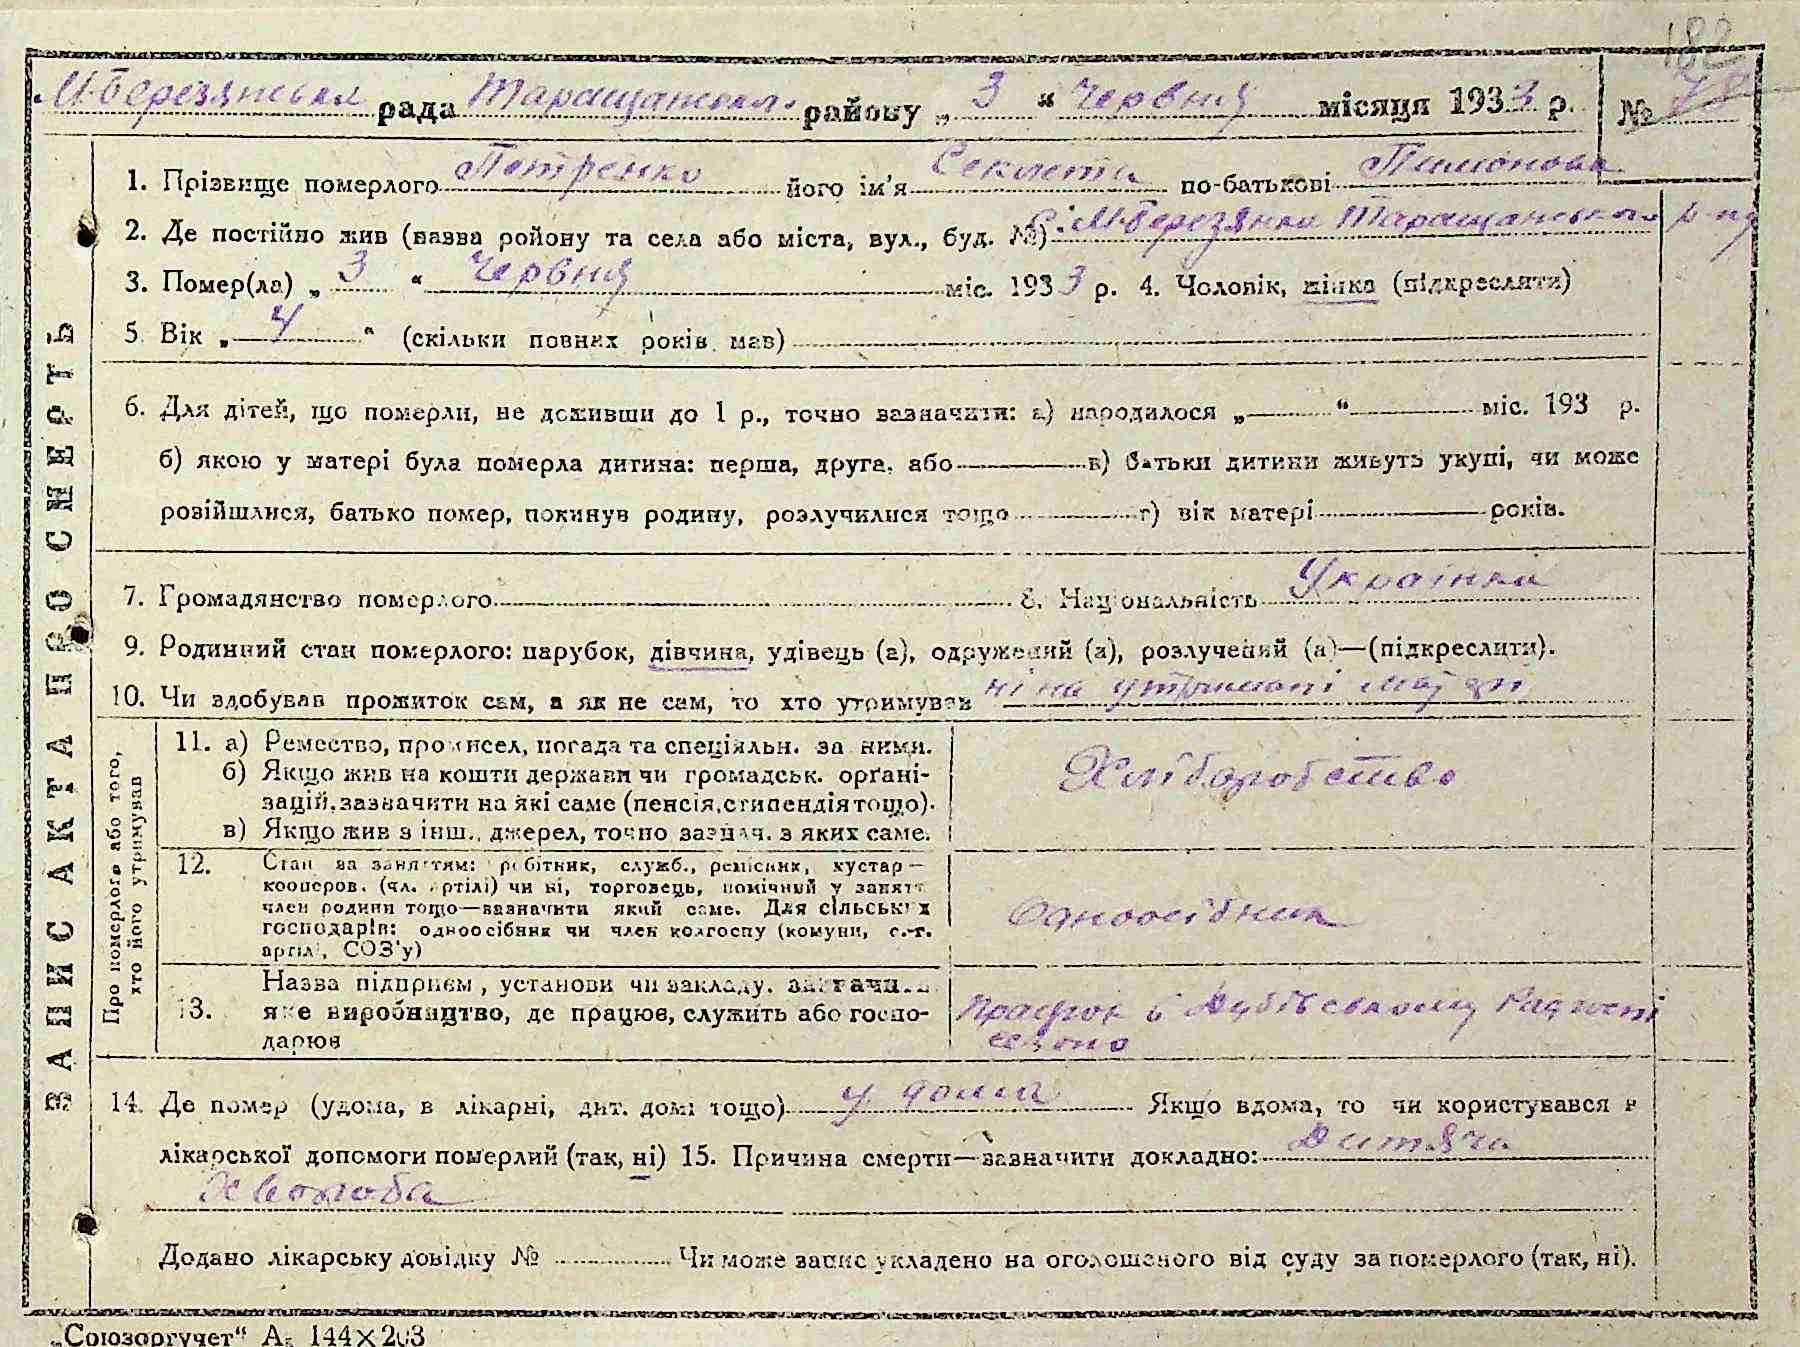 182
М-Березянська рада Таращанськ. району „ 3 “ Червня місяця 1933 р. № 78
1. Прізвище померлого Петренко його ім'я Секлета по-батькові Пимонова
2. Де постійно жив (назва ройону та села або міста, вул., буд. №) с. М-Березянка Таращанського р-ну
3. Помер(ла) „ 3 “ Червня міс. 1933 р. 4. Чоловік, жінка (підкреслити)
5. Вік „ 4 “ (скільки повних років мав)
6. Для дітей, що померли, не доживши до 1 р., точно зазначити: а) народилося „ “ міс. 193 р.
б) якою у матері була померла дитина: перша, друга, або в) батьки дитини живуть укупі, чи може
розійшлися, батько помер, покинув родину, розлучилися тощо г) вік матері років.
7. Громадянство померлого 8. Національність Українка
9. Родинний стан померлого: парубок, дівчина, удівець (а), одружений (а), розлучений (а)—(підкреслити).
10. Чи здобував прожиток сам, а як не сам, то хто утримував ні на утримані
ЗАПИС АКТА ПРО СМЕРТЬ
Про померлого або того,
хто його утримував
11. а) Ремество, промисел, посада та спеціяльн. за ними.
б) Якщо жив на кошти держави чи громадськ. орґані-
зацій, зазначити на які саме (пенсія, стипендія тощо).
в) Якщо жив з інш. джерел, точно зазнач. з яких саме.
Хліборобство
12. Стан за заняттям: робітник, служб., ремісник, кустар—
кооперов. (чл. артілі) чи ні, торговець, помічний у занятт
член родини тощо—зазначити який саме. Для сільських
господарів: одноосібник чи член колгоспу (комуни, с.-г.
артілі, СОЗ'у)
Одноосібник
13. Назва підприєм., установи чи закладу, зазначить
яке виробництво, де працює, служить або госпо-
дарює
Працює в
14. Де помер (удома, в лікарні, дит. домі тощо) у дома Якщо вдома, то чи користувався з
лікарської допомоги померлий (так, ні) 15. Причина смерти—зазначити докладно: Дитяча
хвороба
Додано лікарську довідку № Чи може запис укладено на оголошеного від суду за померлого (так, ні).
„Союзоргучет“ А5 144×203